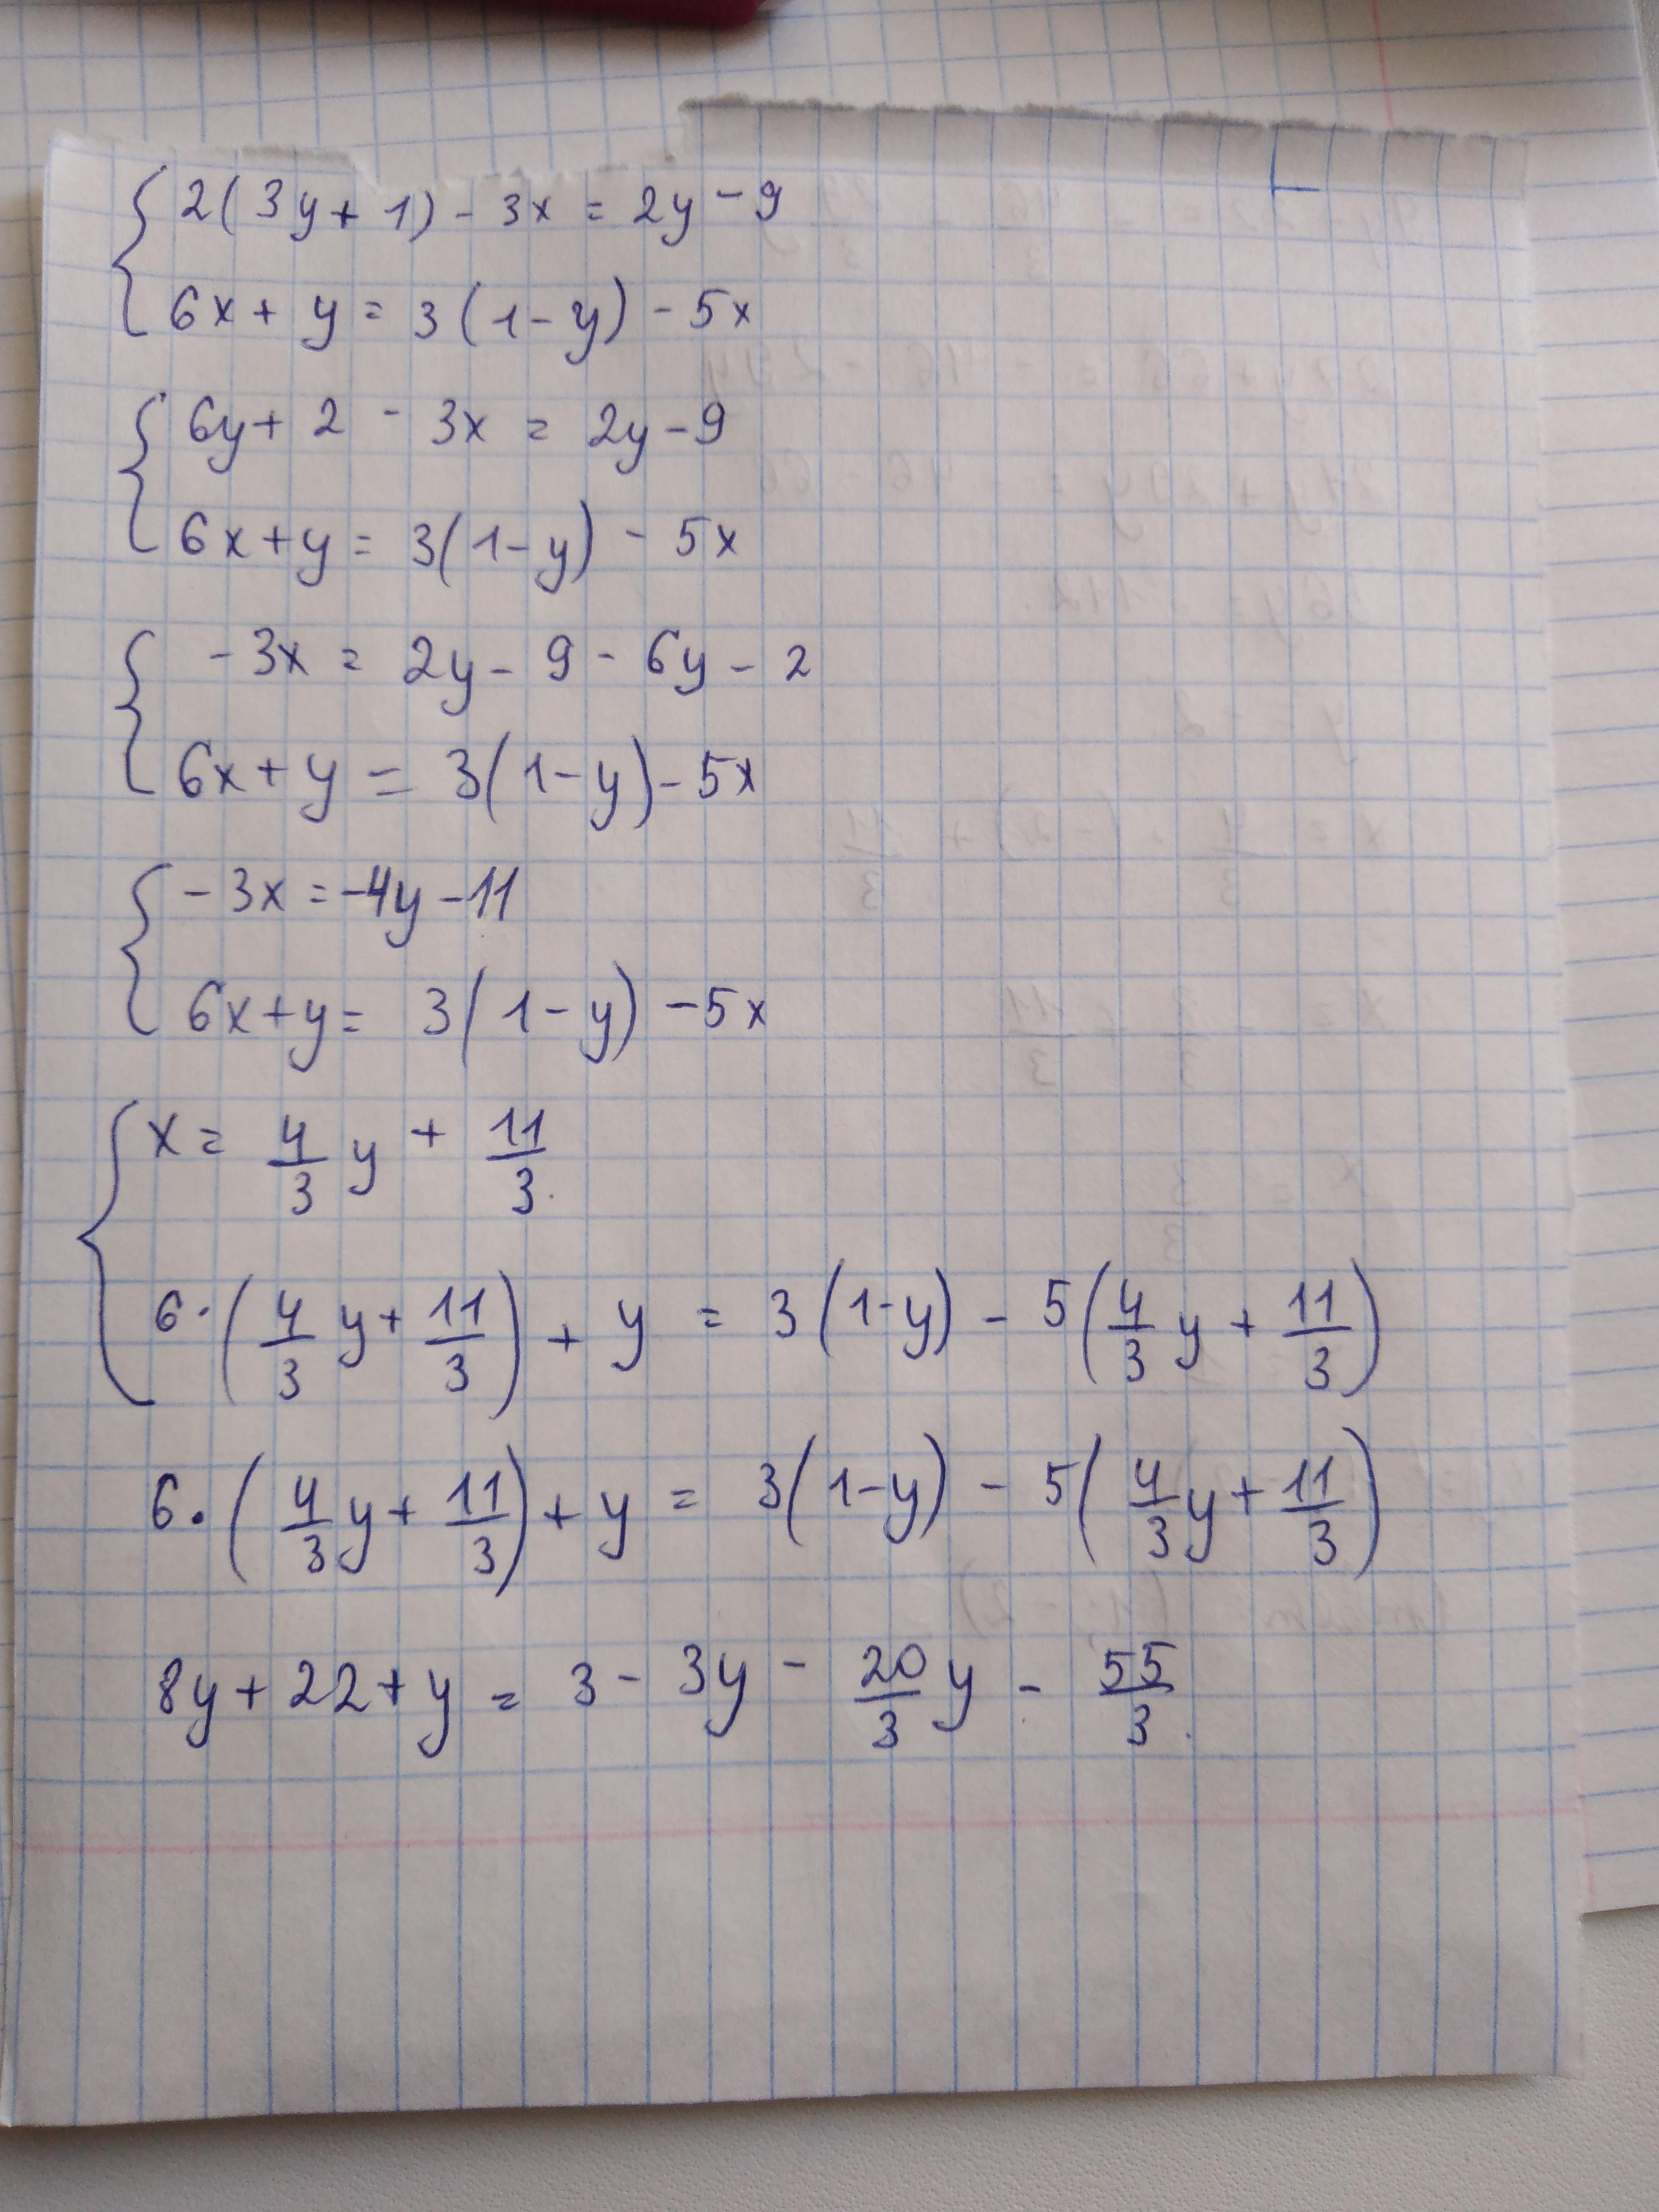 { 2(3y+1) - 3x = 2y - 9
6x + y = 3(1-y) - 5x
{ 6y + 2 - 3x = 2y - 9
6x + y = 3(1-y) - 5x
{ -3x = 2y - 9 - 6y - 2
6x + y = 3(1-y) - 5x
{ -3x = -4y - 11
6x + y = 3(1-y) - 5x
{ x = 4/3 y + 11/3
6·(4/3 y + 11/3) + y = 3(1-y) - 5(4/3 y + 11/3)
6·(4/3 y + 11/3) + y = 3(1-y) - 5(4/3 y + 11/3)
8y + 22 + y = 3 - 3y - 20/3 y - 55/3